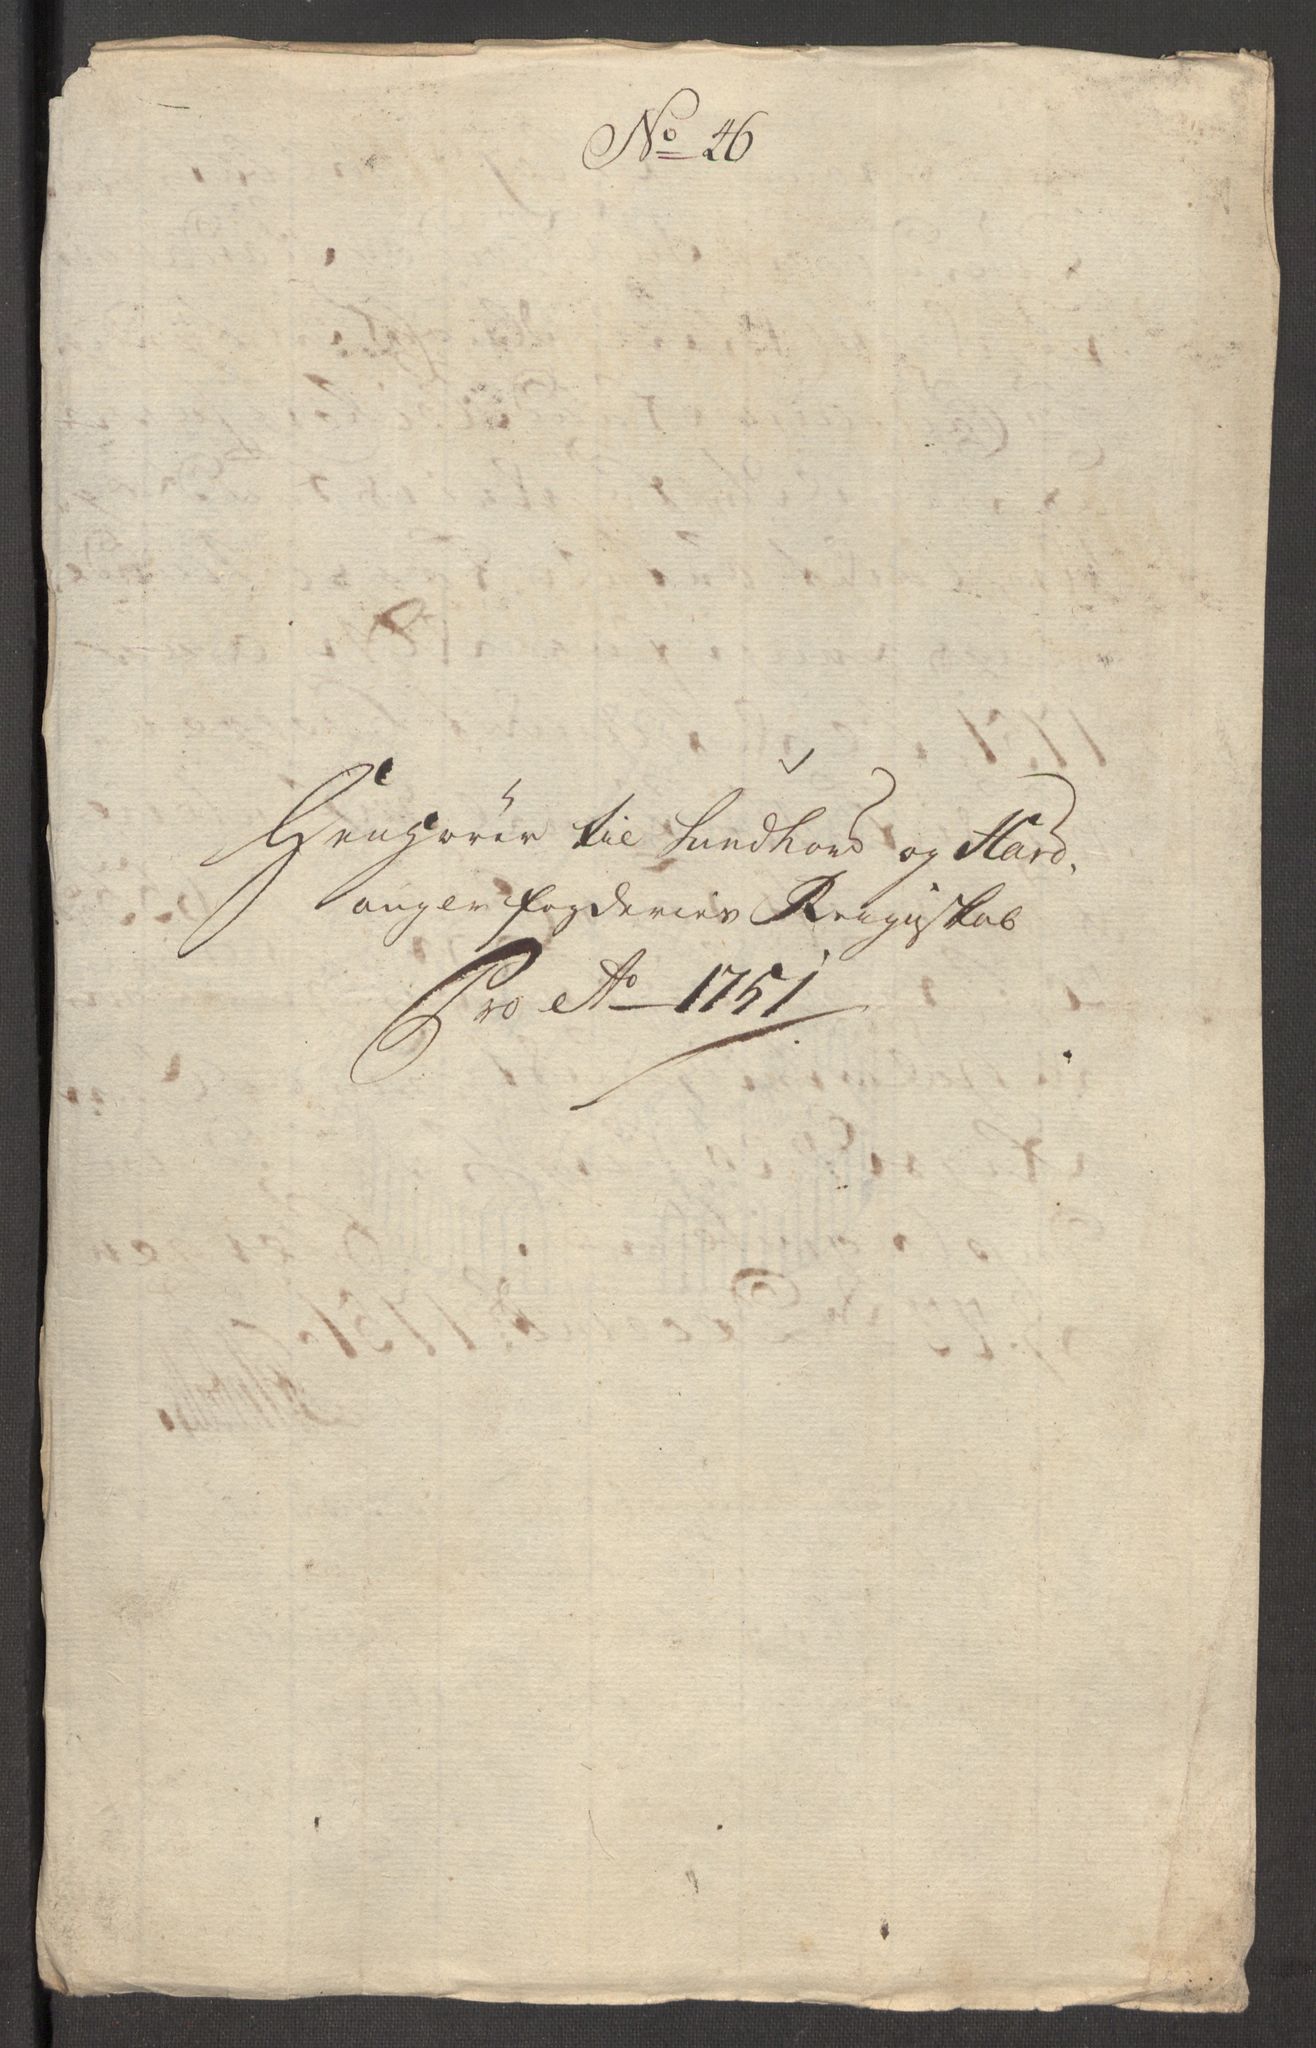 No 46
Henhører til Sundhord og Hard,
anger fogderies Regnskab
Pro Ao 1751